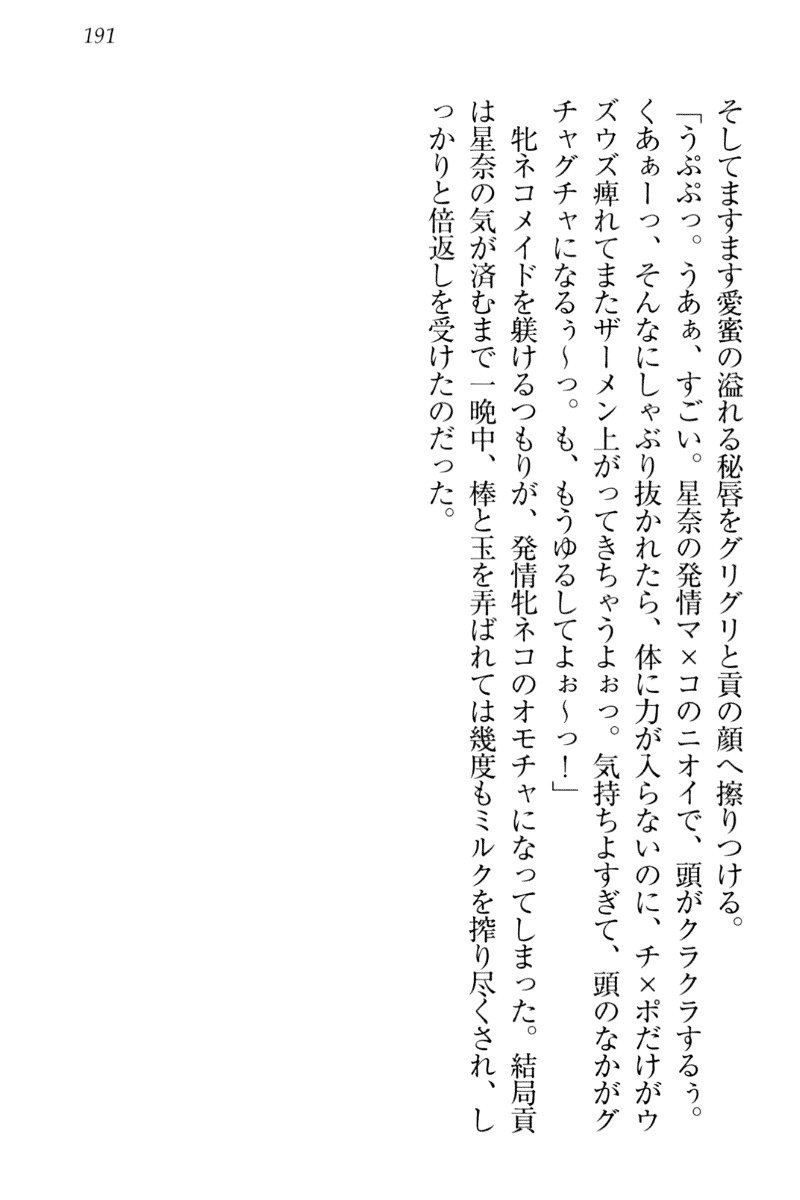 191
そしてますます愛蜜の溢れる秘唇をグリグリと貢の顔へ擦りつける。
「うぷぷっ。うあぁ、すごい。星奈の発情マ×コのニオイで、頭がクラクラするぅ。
くあぁーっ、そんなにしゃぶり抜かれたら、体に力が入らないのに、チ×ポだけがウ
ズウズ痺れてまたザーメン上がってきちゃうよぉっ。気持ちよすぎて、頭のなかがグ
チャグチャになるぅ～っ。も、もうゆるしてよぉ～っ！」
　牝ネコメイドを躾けるつもりが、発情牝ネコのオモチャになってしまった。結局貢
は星奈の気が済むまで一晩中、棒と玉を弄ばれては幾度もミルクを搾り尽くされ、し
っかりと倍返しを受けたのだった。